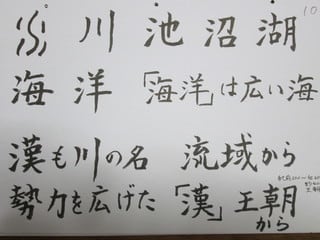 川 池 沼 湖 10
海 洋 「海洋」は広い海
漢も川の名 流域から
勢力を広げた「漢」王朝
から